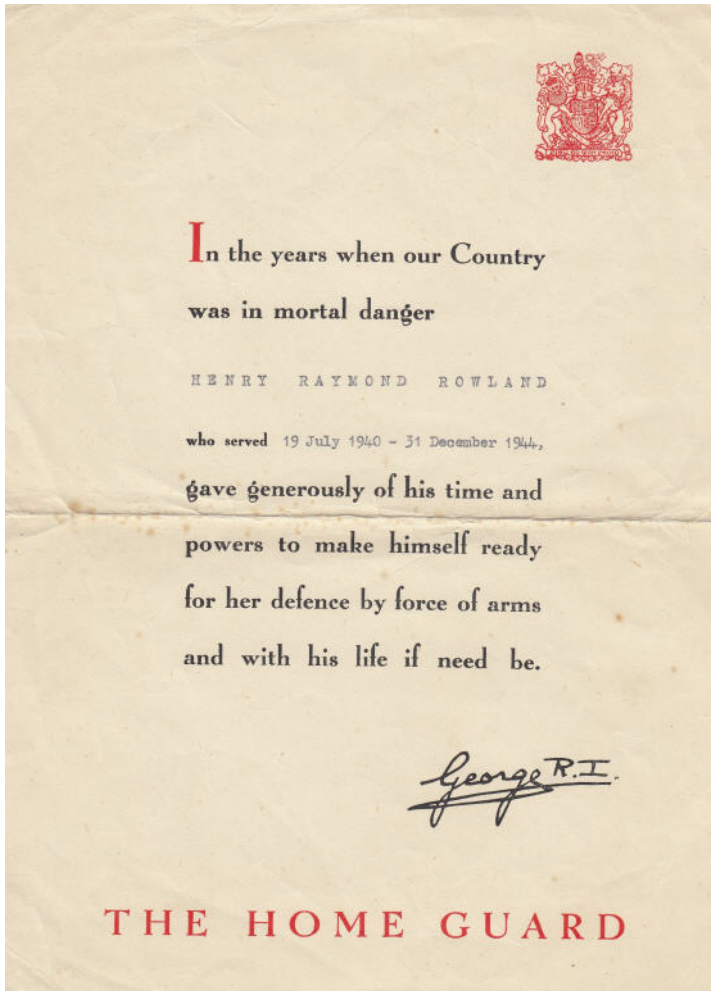 In the years when our Country
was in mortal danger
HENRY RAYMOND ROWLAND
who served 19 July 1940 - 31 December 1944,
gave generously of his time and
powers to make himself ready
for her defence by force of arms
and with his life if need be.
George R.I.
THE HOME GUARD